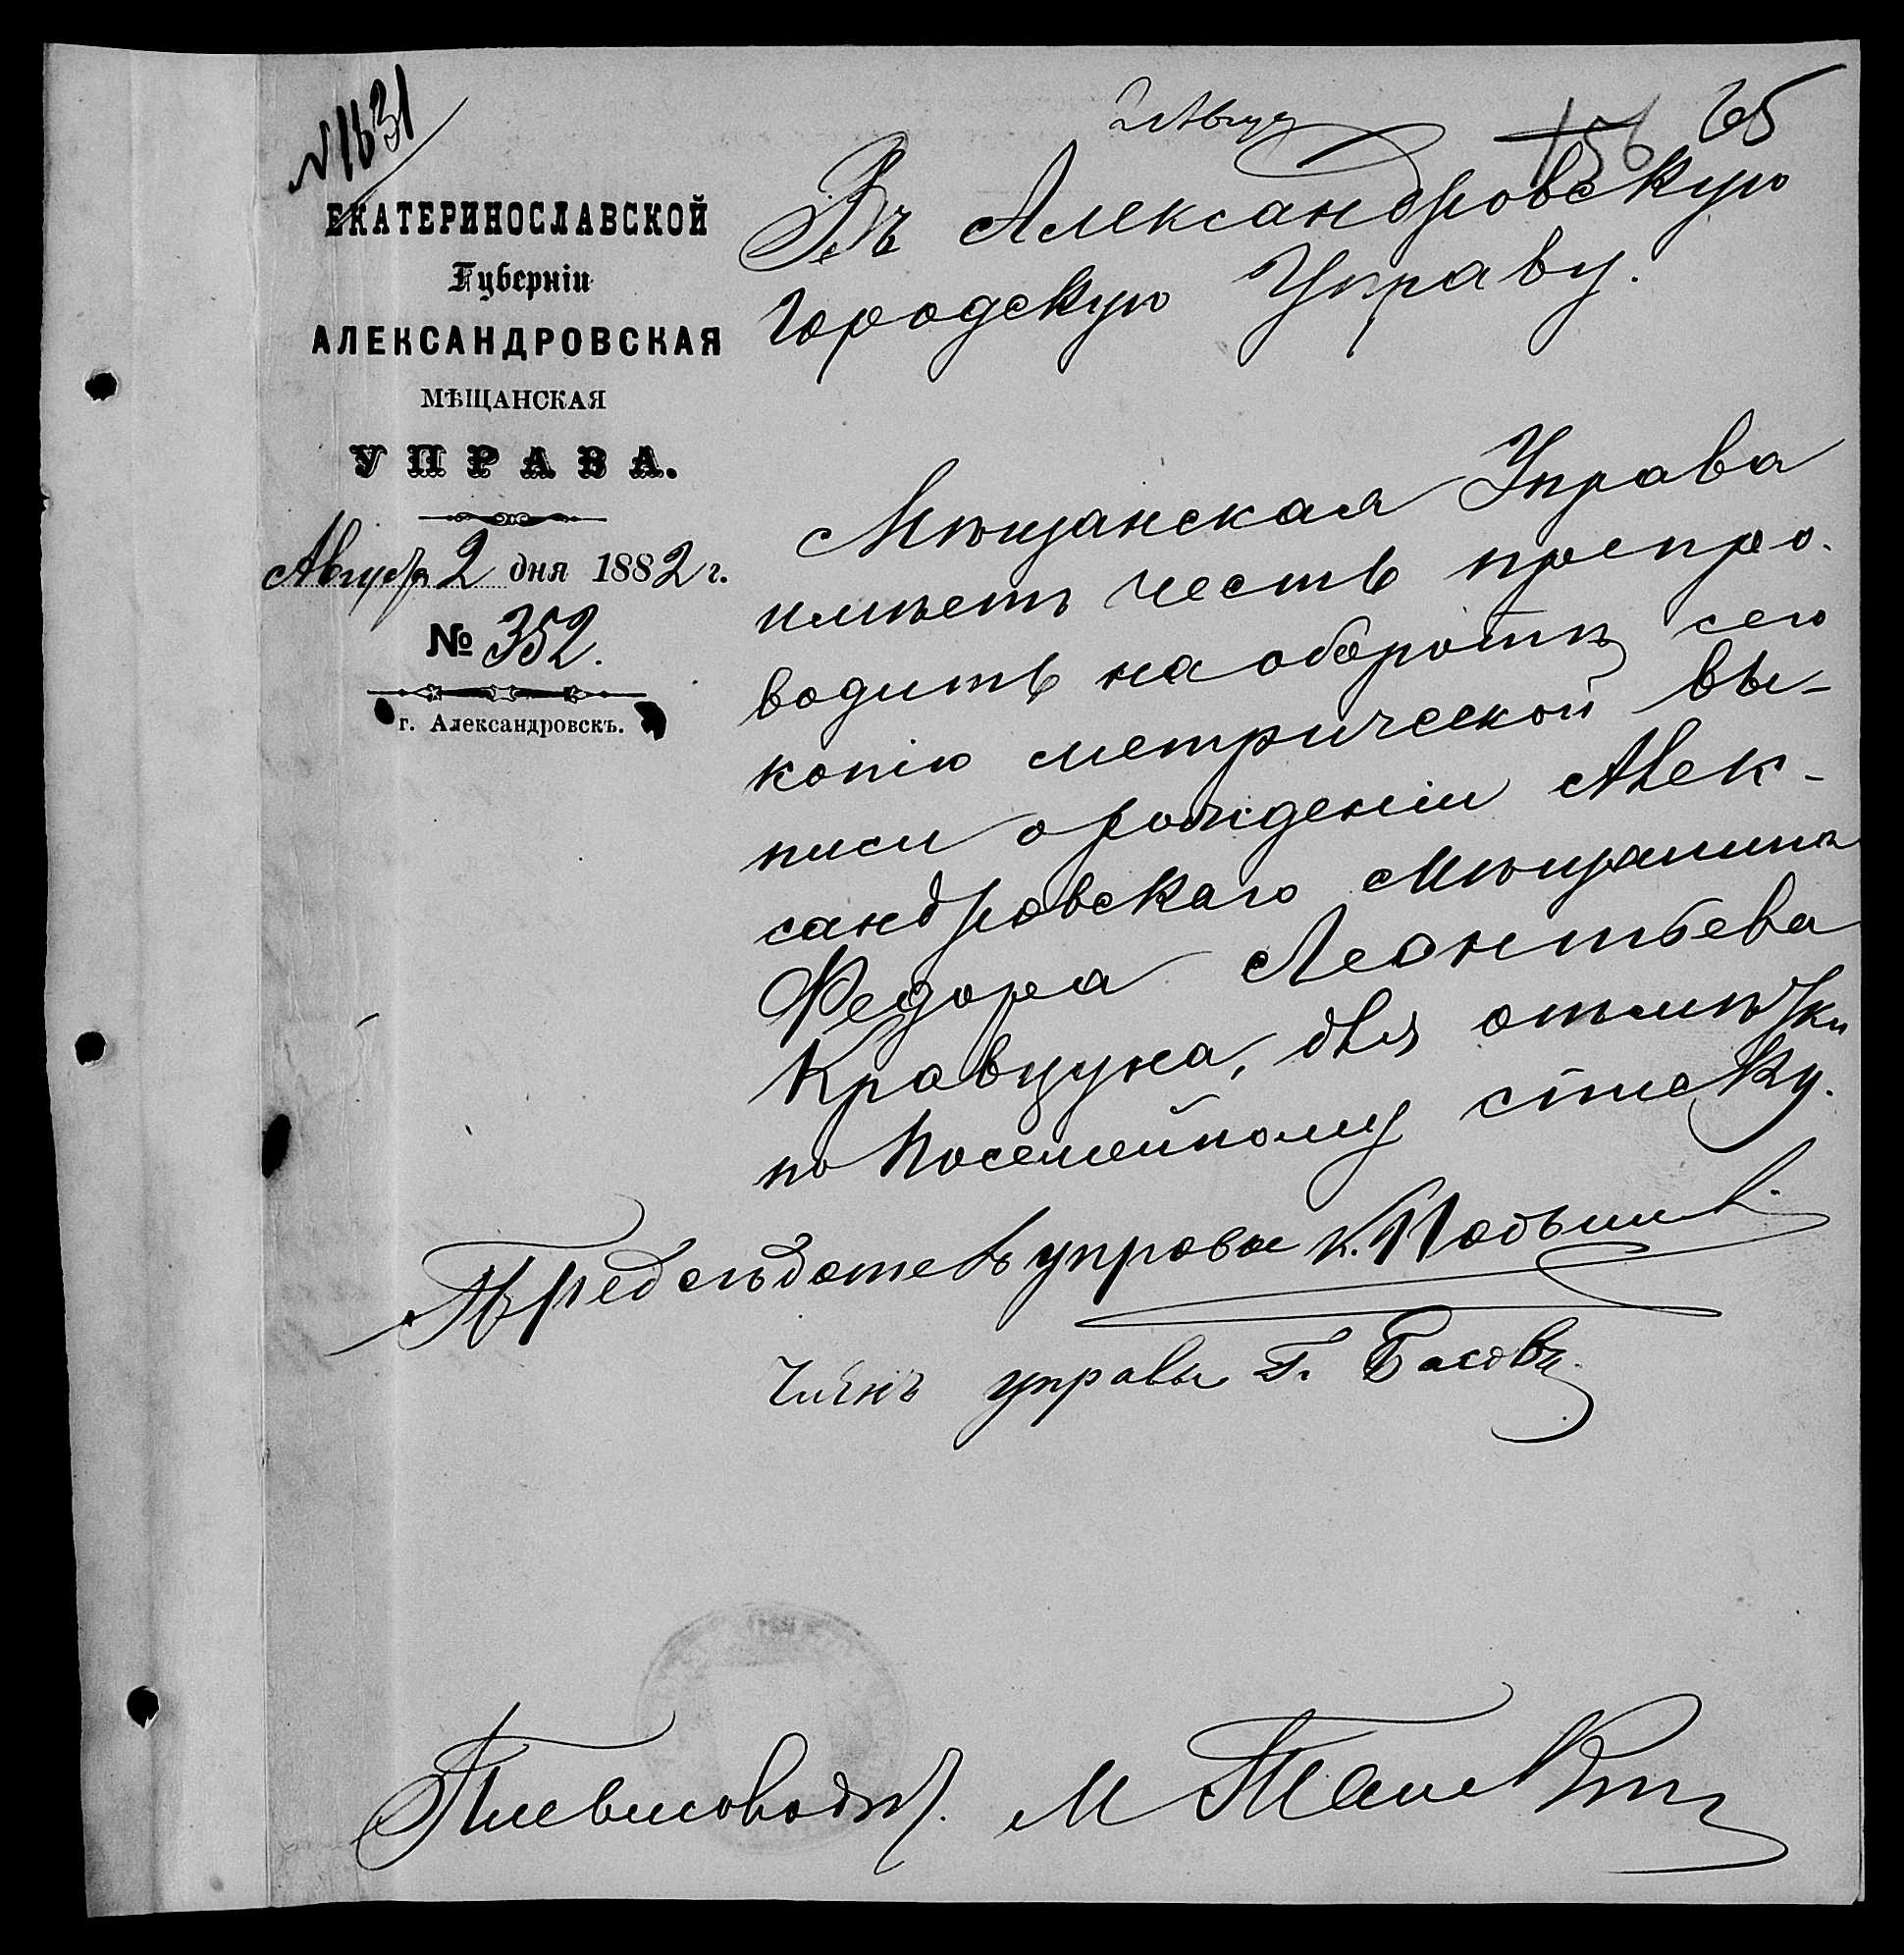 № 1631
2 Авгус
156 65
ЕКАТЕРИНОСЛАВСКОЙ
Губерніи
АЛЕКСАНДРОВСКАЯ
МѢЩАНСКАЯ
УПРАВА.
Августа 2 дня 1882 г.
№ 352.
г. Александровскъ.
Въ Александровскую
Городскую Управу.
Мѣщанская Управа
имѣетъ честь препро-
водить на оборотѣ сего
копію метрической вы-
писи о рожденіи Алек-
сандровскаго Мѣщанина
Федора Леонтьева
Кравцуна, для отмѣтки
по Посемейному списку.
Предсѣдатель управы К.
Членъ управы Г. Басовъ
Письмоводит. М